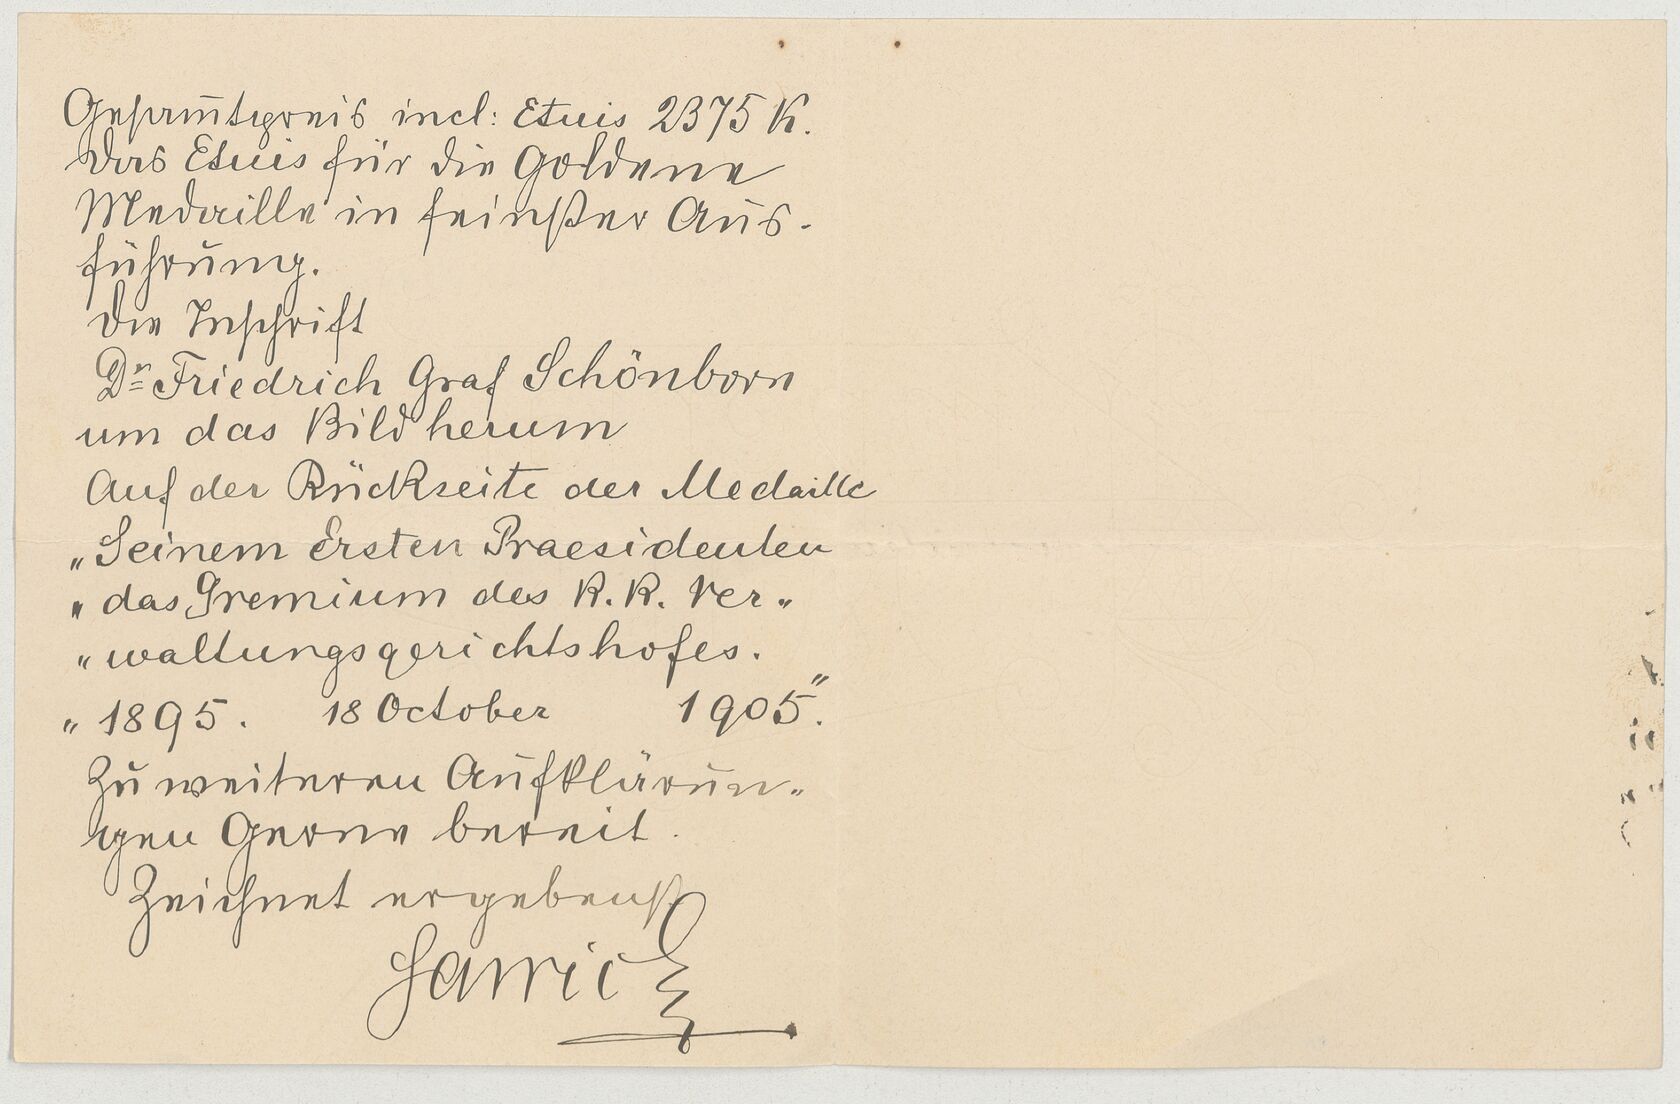 Gesam̅tpreis incl: Etuis 2375 K.
Das Etuis für die Goldene
Medaille in feinster Aus-
führung.
Die Inschrift
Dr Friedrich Graf Schönborn
um das Bild herum
Auf der Rückseite der Medaille
„Seinem Ersten Praesidenten
„das Gremium des K. K. Ver„
„waltungsgerichtshofes.
„1895. 18 October 1905.“
Zu weiteren Aufklärun„
gen Gerne bereit.
Zeichnet ergebenst